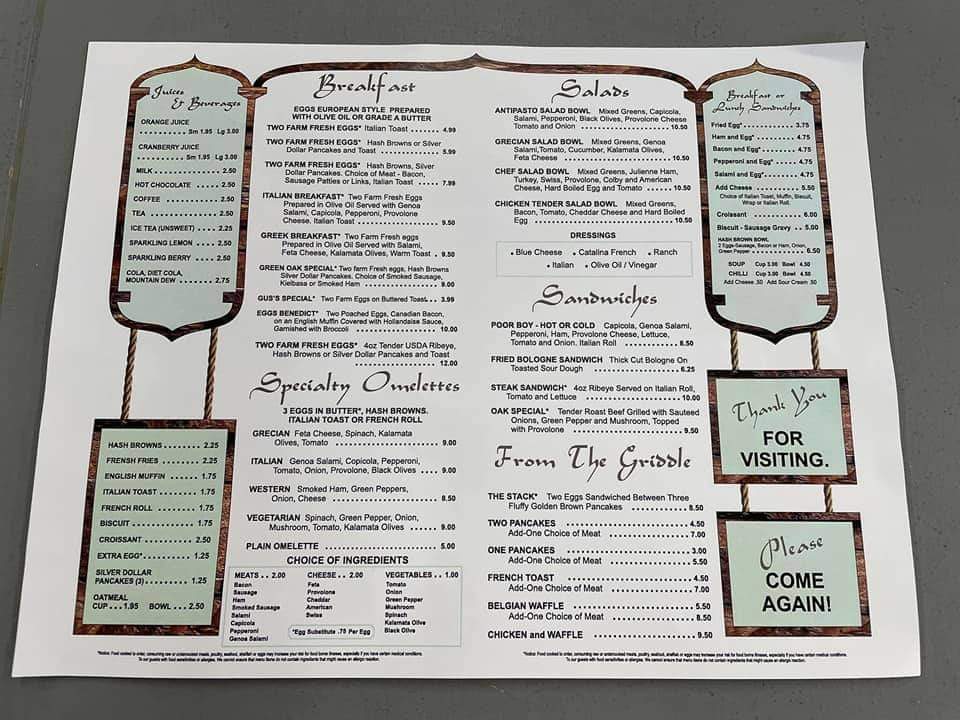 Juices
& Beverages
ORANGE JUICE
.......... Sm 1.95 Lg 3.00
CRANBERRY JUICE
.......... Sm 1.95 Lg 3.00
MILK .......... 2.50
HOT CHOCOLATE ..... 2.50
COFFEE .......... 2.50
TEA .......... 2.50
ICE TEA (UNSWEET) ... 2.25
SPARKLING LEMON .... 2.50
SPARKLING BERRY .... 2.50
COLA, DIET COLA,
MOUNTAIN DEW ..... 2.75
HASH BROWNS ........ 2.25
FRENSH FRIES ........ 2.25
ENGLISH MUFFIN ...... 1.75
ITALIAN TOAST ....... 1.75
FRENCH ROLL ........ 1.75
BISCUIT ........ 1.75
CROISSANT ........ 2.50
EXTRA EGG* ........ 1.25
SILVER DOLLAR
PANCAKES (3) ........ 1.25
OATMEAL
CUP ... 1.95 BOWL ... 2.50
Breakfast
EGGS EUROPEAN STYLE PREPARED
WITH OLIVE OIL OR GRADE A BUTTER
TWO FARM FRESH EGGS* Italian Toast ....... 4.99
TWO FARM FRESH EGGS* Hash Browns or Silver
Dollar Pancakes and Toast ............ 5.99
TWO FARM FRESH EGGS* Hash Browns, Silver
Dollar Pancakes. Choice of Meat - Bacon,
Sausage Patties or Links, Italian Toast ..... 7.99
ITALIAN BREAKFAST* Two Farm Fresh Eggs
Prepared in Olive Oil Served with Genoa
Salami, Capicola, Pepperoni, Provolone
Cheese. Italian Toast ............ 9.50
GREEK BREAKFAST* Two Farm Fresh eggs
Prepared in Olive Oil Served with Salami,
Feta Cheese, Kalamata Olives, Warm Toast .. 9.50
GREEN OAK SPECIAL* Two farm fresh eggs, Hash Browns
Silver Dollar Pancakes. Choice of Smoked Sausage,
Kielbasa or Smoked Ham ............ 9.00
GUS'S SPECIAL* Two Farm Eggs on Buttered Toast... 3.99
EGGS BENEDICT* Two Poached Eggs, Canadian Bacon,
on an English Muffin Covered with Hollandaise Sauce,
Garnished with Broccoli ............ 10.00
TWO FARM FRESH EGGS* 4oz Tender USDA Ribeye,
Hash Browns or Silver Dollar Pancakes and Toast
............ 12.00
Specialty Omelettes
3 EGGS IN BUTTER*, HASH BROWNS.
ITALIAN TOAST OR FRENCH ROLL
GRECIAN Feta Cheese, Spinach, Kalamata
Olives, Tomato ............ 9.00
ITALIAN Genoa Salami, Copicola, Pepperoni,
Tomato, Onion, Provolone, Black Olives .... 9.00
WESTERN Smoked Ham, Green Peppers,
Onion, Cheese ............ 8.50
VEGETARIAN Spinach, Green Pepper, Onion,
Mushroom, Tomato, Kalamata Olives ...... 9.00
PLAIN OMELETTE ............ 5.00
CHOICE OF INGREDIENTS
MEATS .. 2.00
Bacon
Sausage
Ham
Smoked Sausage
Salami
Capicola
Pepperoni
Genoa Salami
CHEESE .. 2.00
Feta
Provolone
Cheddar
American
Swiss
VEGETABLES .. 1.00
Tomato
Onion
Green Pepper
Mushroom
Spinach
Kalamata Olive
Black Olive
*Egg Substitute .75 Per Egg
*Notice: Food cooked to order, consuming raw or undercooked meats, poultry, seafood, shellfish or eggs may increase your risk for food borne illness, especially if you have certain medical conditions.
To our guests with food sensitivities or allergies. We cannot ensure that menu items do not contain ingredients that might cause an allergic reaction.
Salads
ANTIPASTO SALAD BOWL Mixed Greens, Capicola,
Salami, Pepperoni, Black Olives, Provolone Cheese
Tomato and Onion ............ 10.50
GRECIAN SALAD BOWL Mixed Greens, Genoa
Salami,Tomato, Cucumber, Kalamata Olives,
Feta Cheese ............ 10.50
CHEF SALAD BOWL Mixed Greens, Julienne Ham,
Turkey, Swiss, Provolone, Colby and American
Cheese, Hard Boiled Egg and Tomato ..... 10.50
CHICKEN TENDER SALAD BOWL Mixed Greens,
Bacon, Tomato, Cheddar Cheese and Hard Boiled
Egg ............ 10.50
DRESSINGS
• Blue Cheese • Catalina French • Ranch
• Italian • Olive Oil / Vinegar
Sandwiches
POOR BOY - HOT OR COLD Capicola, Genoa Salami,
Pepperoni, Ham, Provolone Cheese, Lettuce,
Tomato and Onion. Italian Roll ............ 8.50
FRIED BOLOGNE SANDWICH Thick Cut Bologne On
Toasted Sour Dough ............ 6.25
STEAK SANDWICH* 4oz Ribeye Served on Italian Roll,
Tomato and Lettuce ............ 10.00
OAK SPECIAL* Tender Roast Beef Grilled with Sauteed
Onions, Green Pepper and Mushroom, Topped
with Provolone ............ 9.50
From The Griddle
THE STACK* Two Eggs Sandwiched Between Three
Fluffy Golden Brown Pancakes ............ 8.50
TWO PANCAKES ............ 4.50
Add-One Choice of Meat ............ 7.00
ONE PANCAKES ............ 3.00
Add-One Choice of Meat ............ 5.50
FRENCH TOAST ............ 4.50
Add-One Choice of Meat ............ 7.00
BELGIAN WAFFLE ............ 5.50
Add-One Choice of Meat ............ 8.50
CHICKEN and WAFFLE ............ 9.50
*Notice: Food cooked to order, consuming raw or undercooked meats, poultry, seafood, shellfish or eggs may increase your risk for food borne illness, especially if you have certain medical conditions.
To our guests with food sensitivities or allergies. We cannot ensure that menu items do not contain ingredients that might cause an allergic reaction.
Breakfast or
Lunch Sandwiches
Fried Egg* ............ 3.75
Ham and Egg* ........ 4.75
Bacon and Egg* ...... 4.75
Pepperoni and Egg* .... 4.75
Salami and Egg* ...... 4.75
Add Cheese ........ 5.50
Choice of Italian Toast, Muffin, Biscuit,
Wrap or Italian Roll.
Croissant ............ 6.00
Biscuit - Sausage Gravy .. 5.00
HASH BROWN BOWL
2 Eggs-Sausage, Bacon or Ham, Onion,
Green Pepper ............ 6.50
SOUP Cup 3.00 Bowl 4.50
CHILLI Cup 3.00 Bowl 4.50
Add Cheese .50 Add Sour Cream .50
Thank You
FOR
VISITING.
Please
COME
AGAIN!